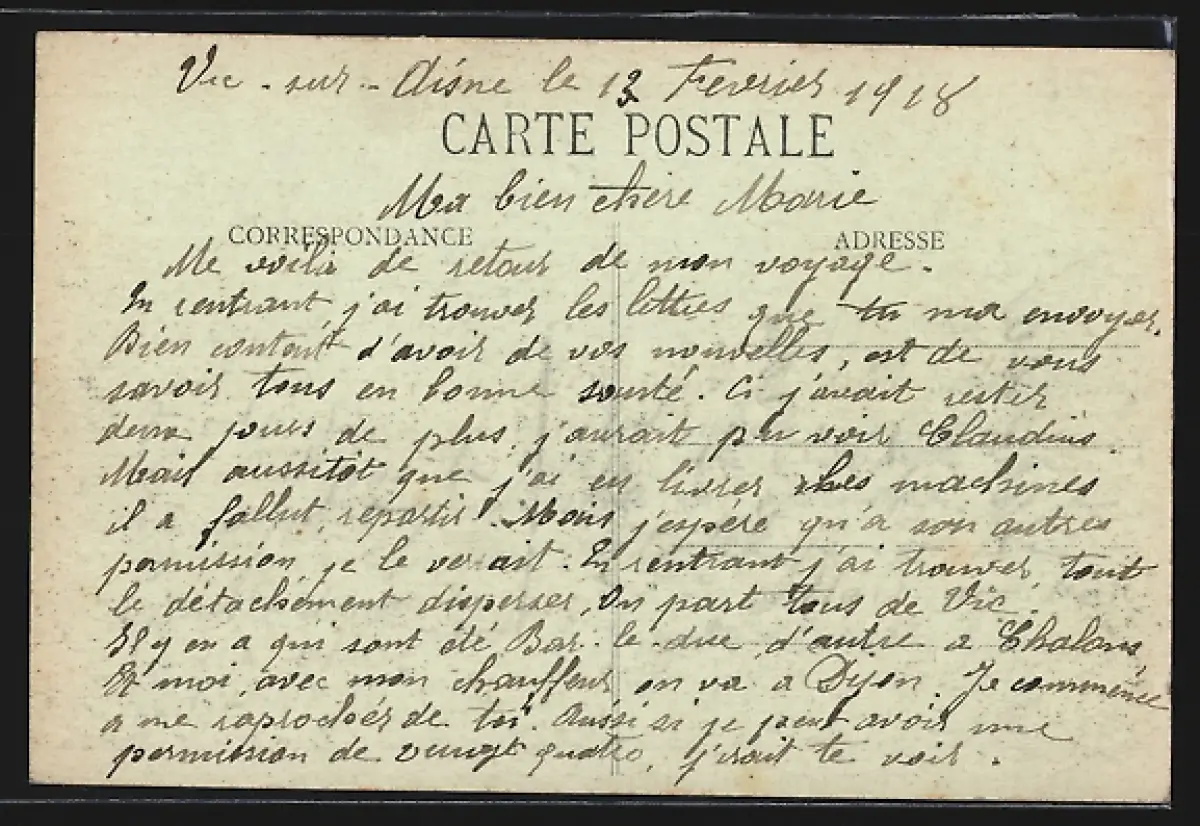 Vic-sur-Aisne le 13 Fevrier 1918
CARTE POSTALE
Ma bien chère Marie
CORRESPONDANCE
ADRESSE
Me voilà de retour de mon voyage.
En rentrant j'ai trouver les lettres que tu ma envoyer.
Bien contant d'avoir de vos nouvelles, est de vous
savoir tous en bonne santé. Ci j'avait rester
deux jours de plus, j'aurait pu voir Claudius.
Mais aussitôt que j'ai eu livrer les machines
il a fallut repartir. Mais j'espére qu'a son autres
permission je le verrait. En rentrant j'ai trouver, tout
le détachement disperser, On part tous de Vic.
Il y en a qui sont été Bar-le-duc, d'autre a Chalons,
Et moi, avec mon chauffeur on va a Dijon. Je commence
a me raprochér de toi. Aussi si je peut avoir une
permission de vingt quatre, j'irait te voir.